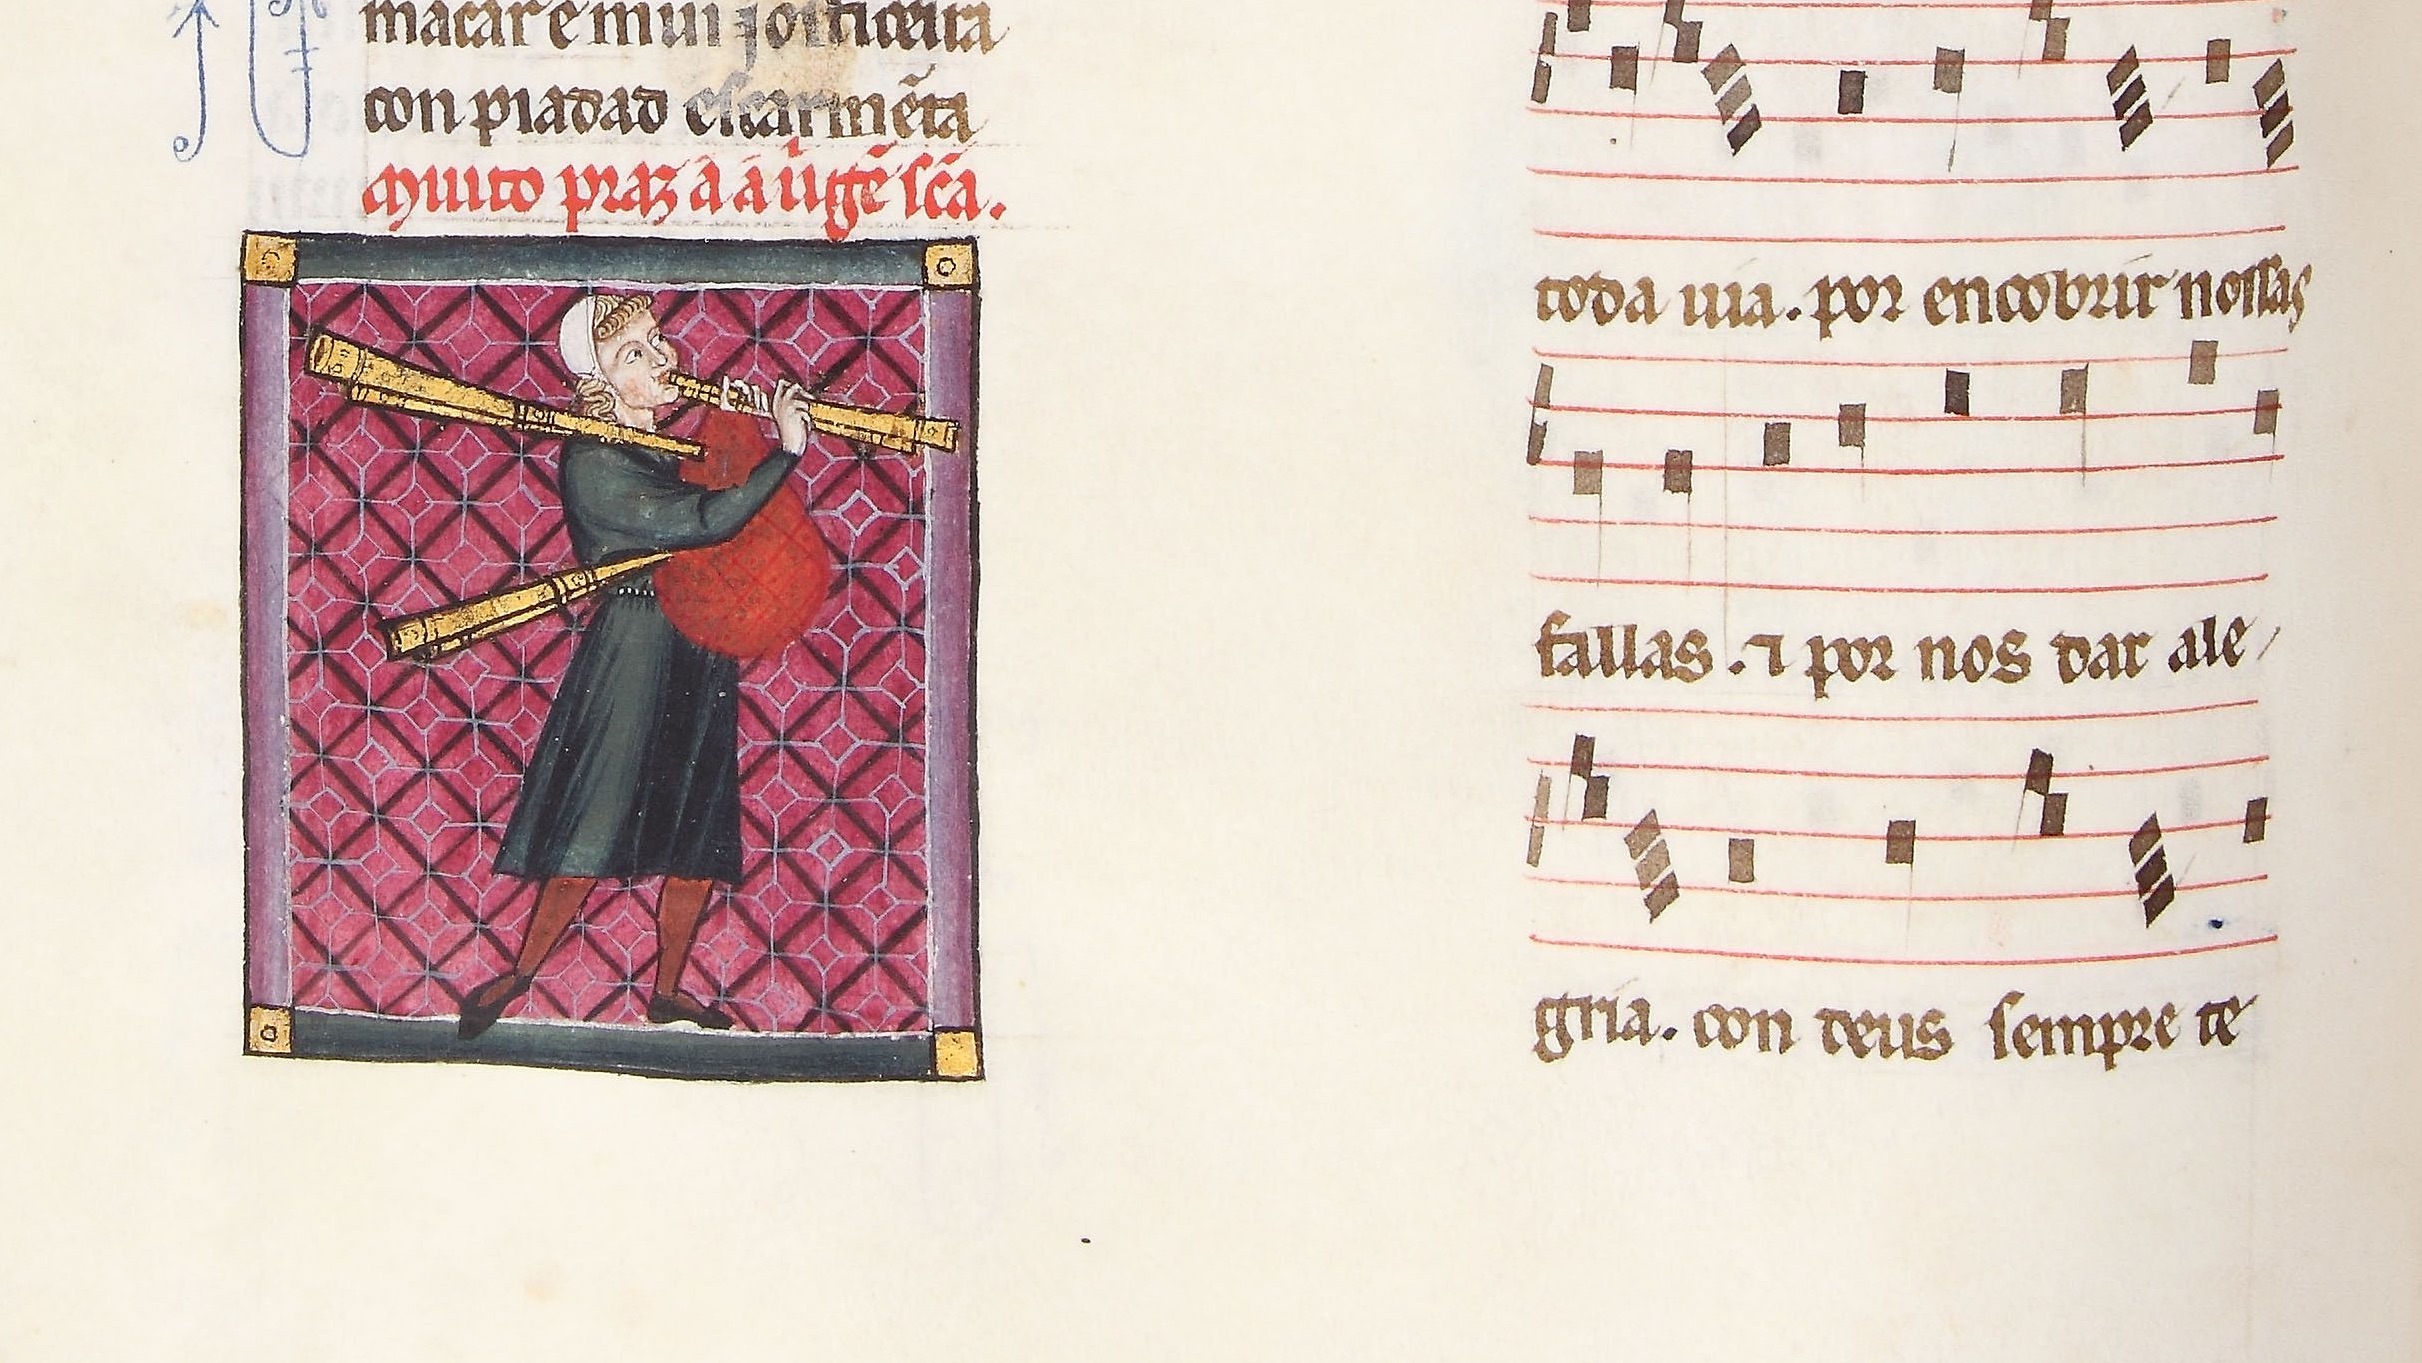 macar e mui josticeira
con piadad escarmēta
Muito praz á a uȋgē scā.
toda uia. por encobrir nossas
fallas. ⁊ por nos dar ale/
gria. con deus sempre te